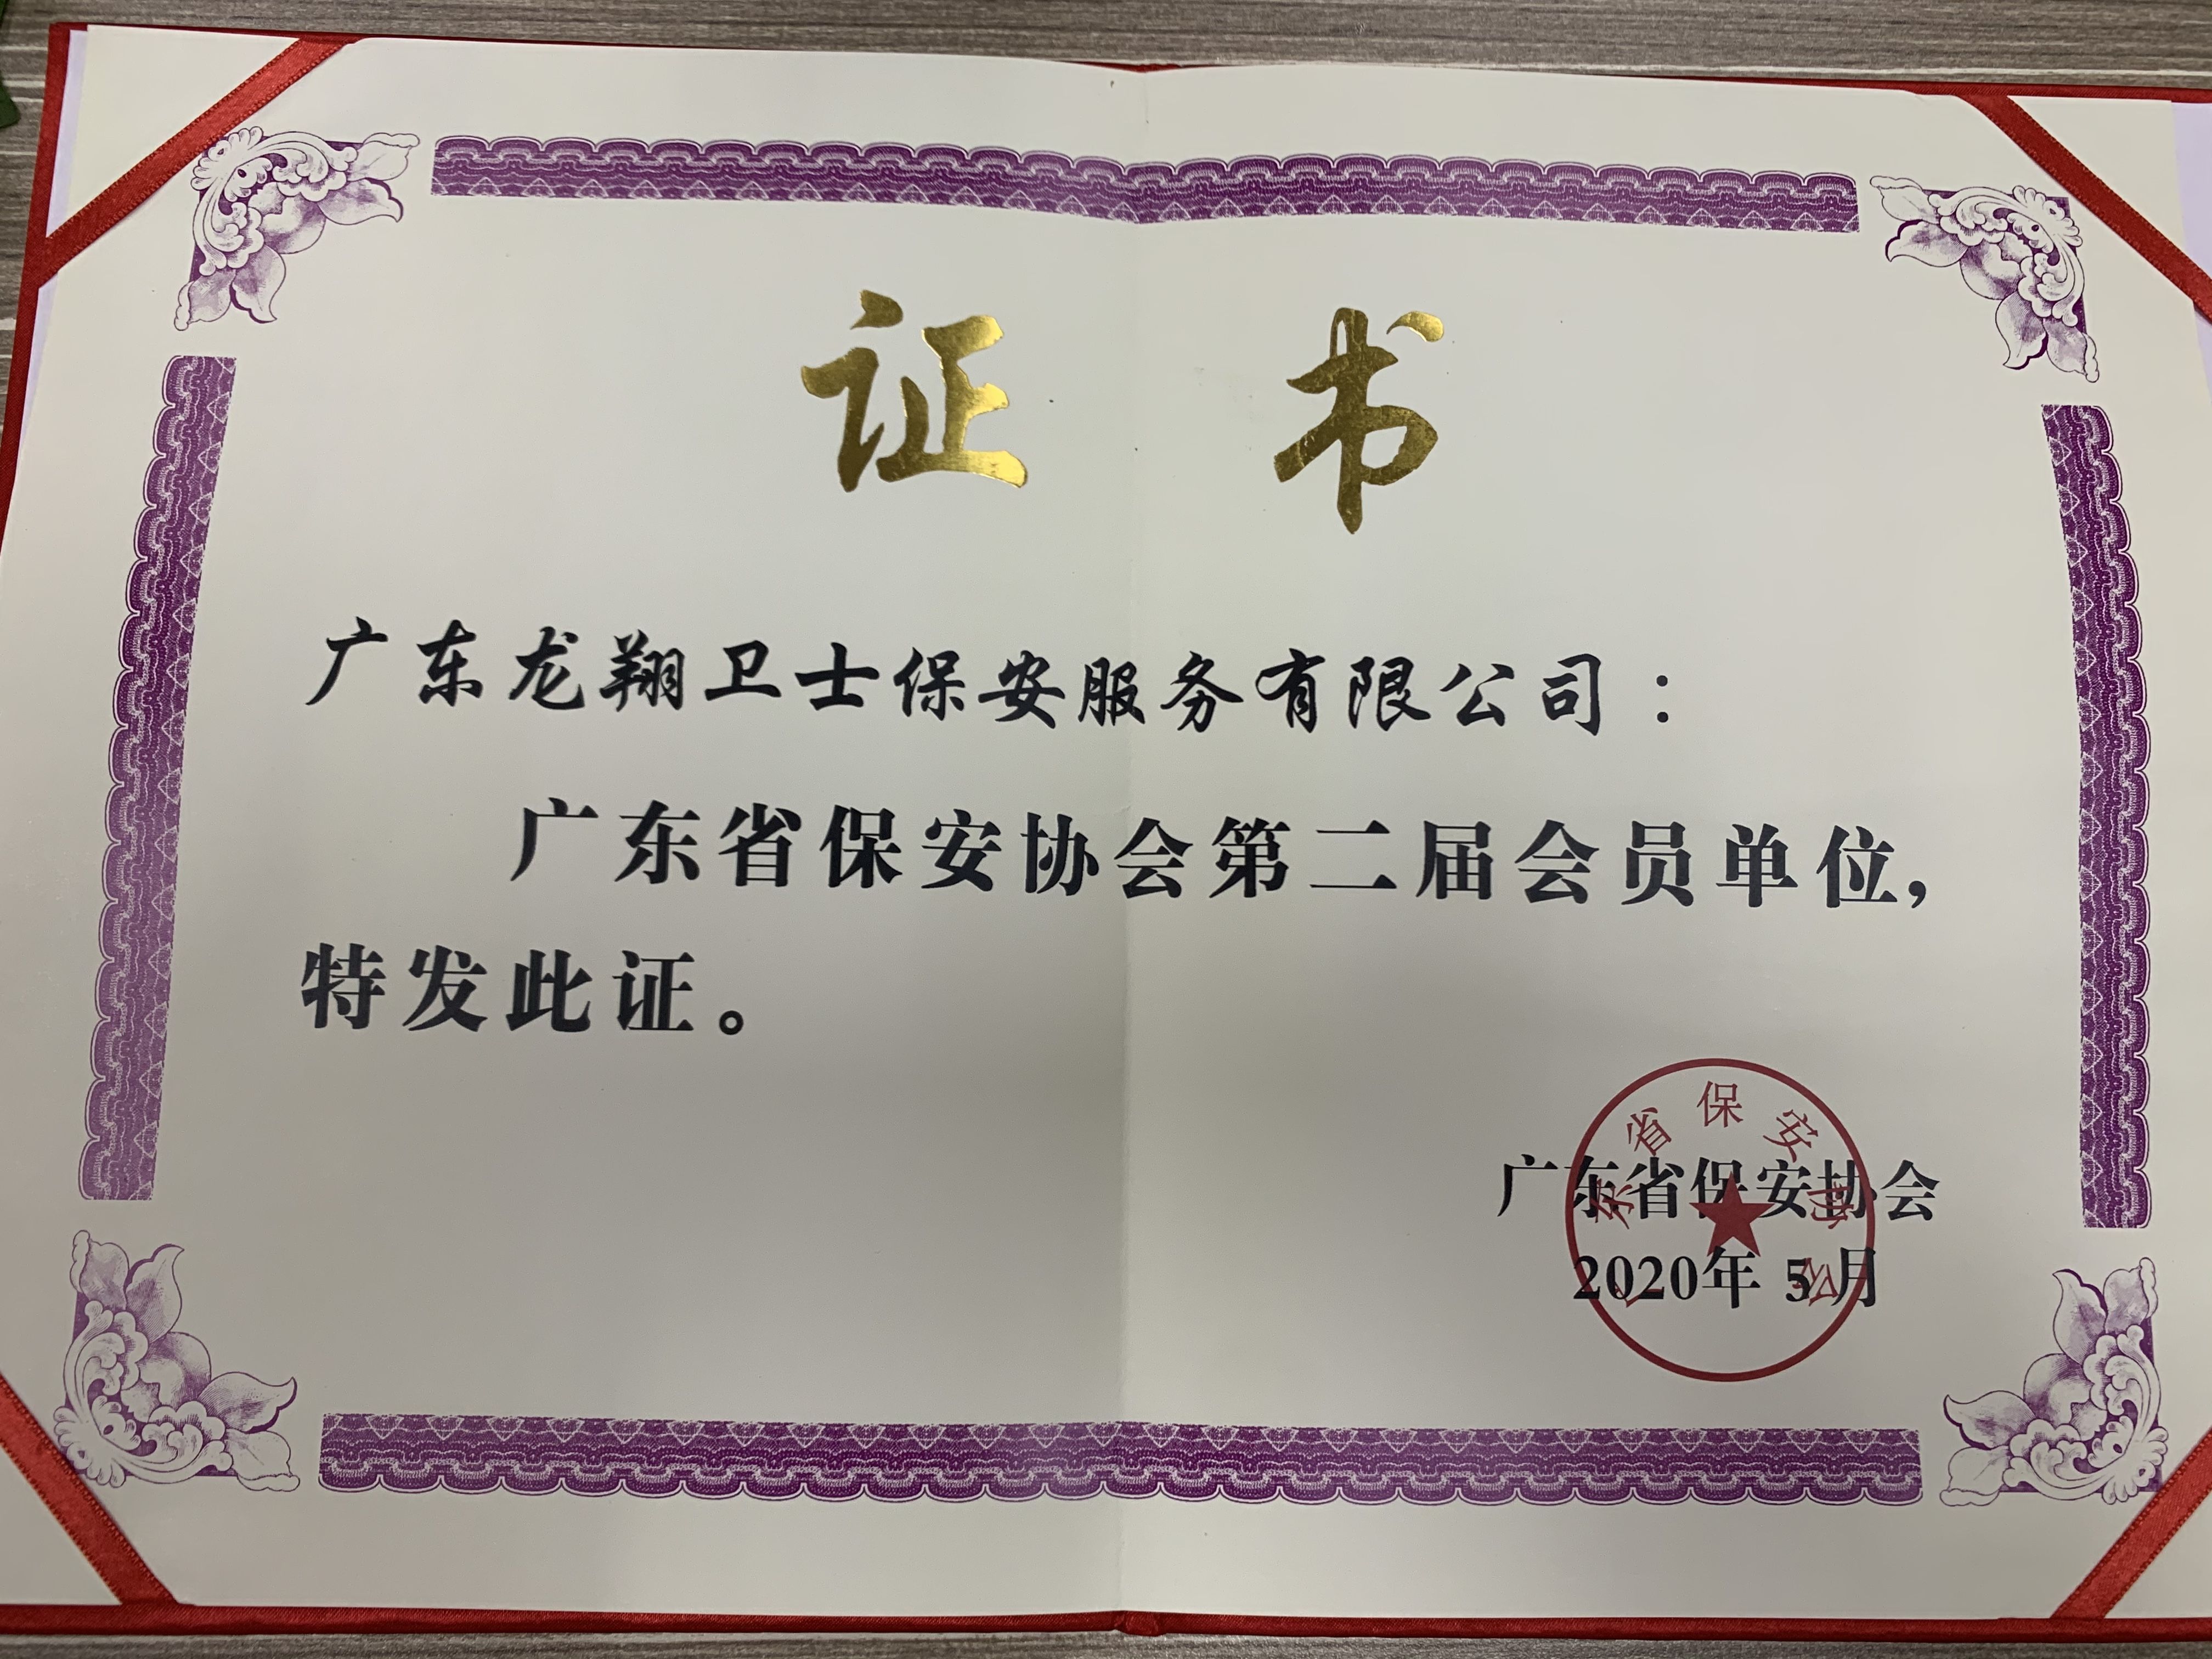 证书
广东龙翔卫士保安服务有限公司：
广东省保安协会第二届会员单位，
特发此证。
广东省保安协会
2020年 5月
广东省保安协会